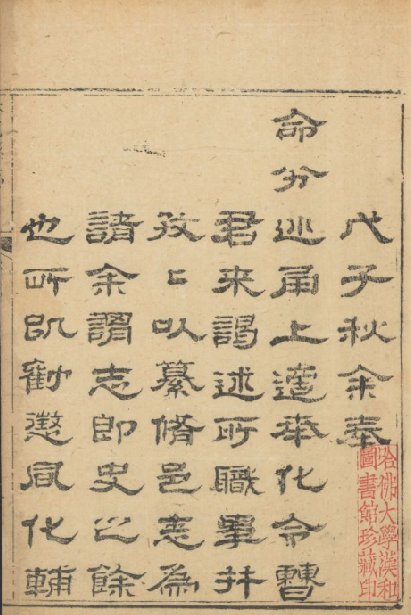 戊子秋余奉
命分巡甬上適奉化令曹
君来謁述所職事并
孜〻以纂脩邑志為
請余謂志即史之餘
也所以勸懲風化輔
哈佛大學漢和
圖書館珍藏印